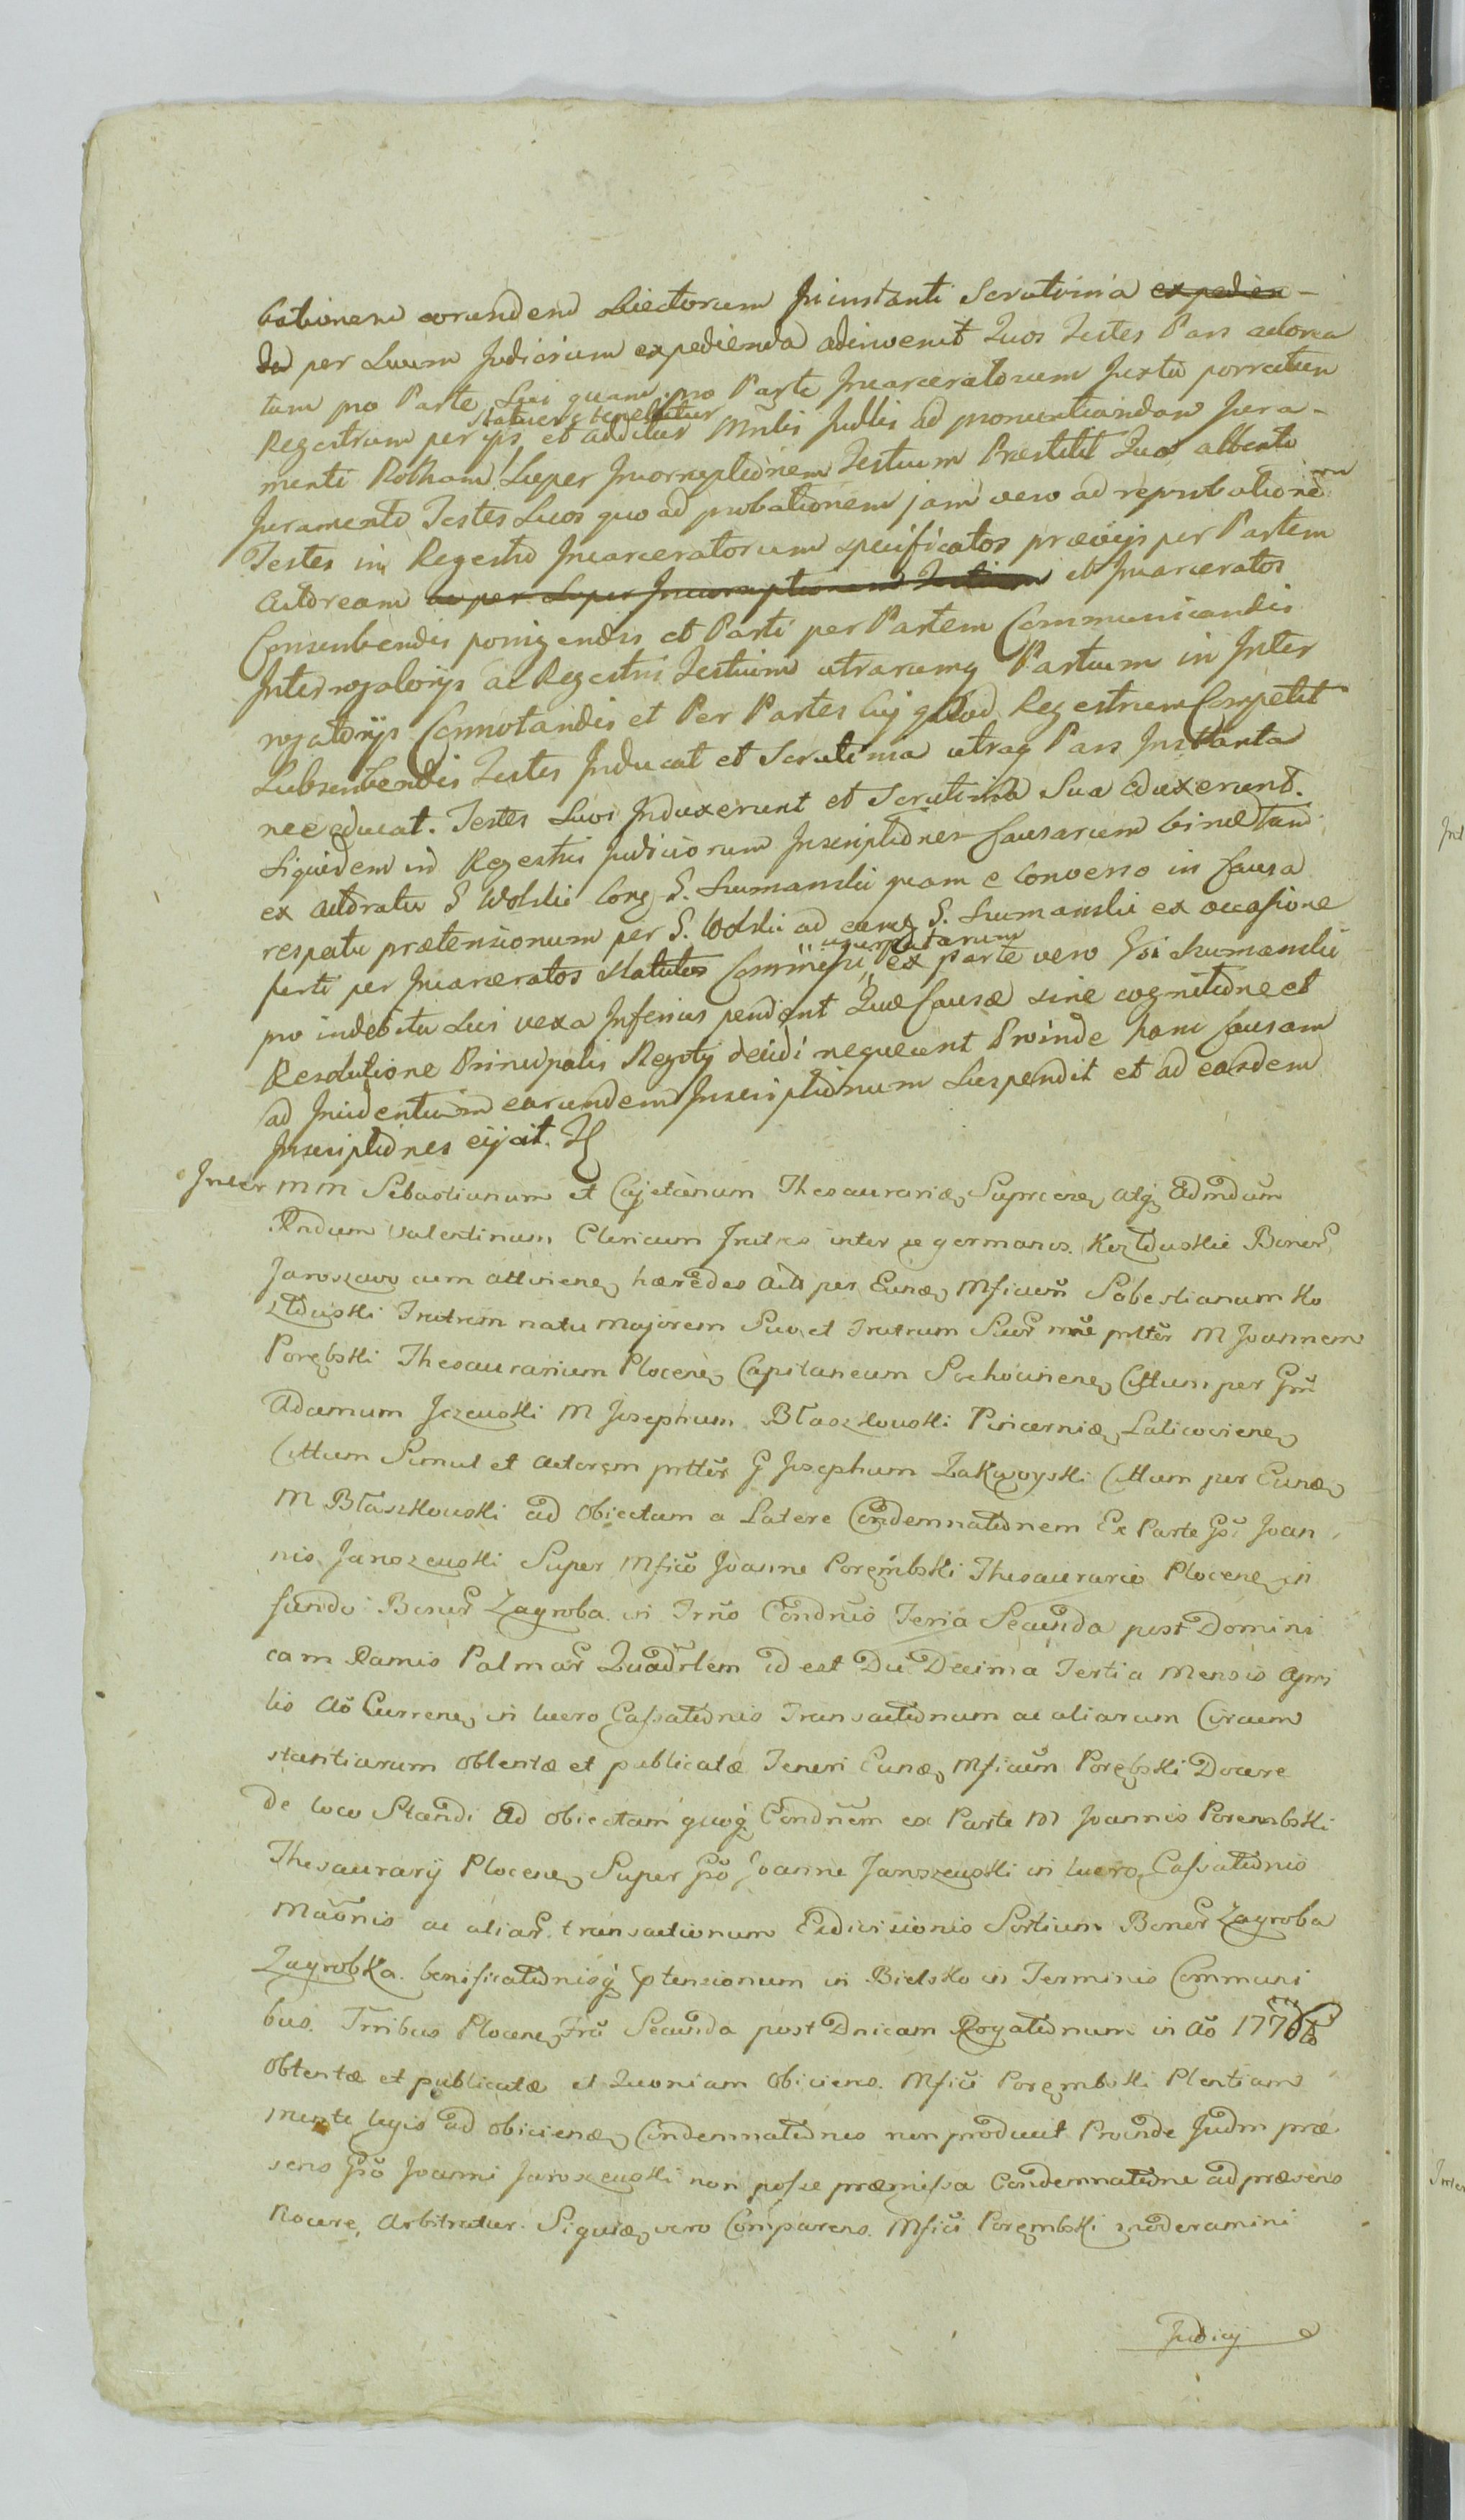 bationem eorundem obiectorum Juinstanti Scrutinia expedien-
da per Suum Judicium expedienda adinvenit Quos Testes Pars actorea
tam pro Parte Sui quam pro Parte Incarceratorum Juxta porrectum
statuere tenebitur
Regestrum per ips et additur Mnlis Judlis ad pronuntiandam Jura-
menti Rotham Super Incorruptionem Testium Praestitit Quo
Juramento Testes Suos quo ad probationem jam vero ad reprobationem
Testes in Regestro Incarceratorum specificatos praevijs per Partem
Actoream ac per Super Incorruptionem Testium et Incarceratos
Conscribendis porrigendis et Parti per Partem Communicandis
Interrogatorijs ac Regestris Testium utrarumq Partium in Inter
rogatorijs Connotandis et Per Partes Cuj quod Regestrum Competit
Subscribendis Testes Inducat et Scrutinia utraq Pars Instanta
nee educat. Testes Suos Induxerunt et Scrutinia Sua eduxerunt.
Siquidem in Regestris Judiciorum Inscriptiones Causarum binae tam
ex actoratu S Wolski Conq S. Szumanski quam e Converso in Causa
respectu praetensionum per S. Wolski ad eunq S. Szumanski ex occasione
usurpatarum
furti per Incarceratos Statutos Commissi, ex parte vero Gsi Szumanski
pro indebita Sui vexa Inferius pendent Quae Causae sine cognitione et
Resolutione Principalis Negotij decidi nequeunt Proinde hanc Causam
ad Incidentiam earundem Inscriptionum Suspendit et ad easdem
Inscriptiones eijcit.
Inter MM Sebastianum et Cajetanum Thesaurariæ Supracenę atq Admdum
Rndum Valentinum Clericum Fratres inter se germanos Kozłduskie Bonor
Jaroszewo cum attinenę haeredes Act per Eundę Mficum Sebestianum Ko
złduski Fratrem natu Majorem Suo et Fratrum Suor nne prtter M Joannem
Porębski Thesaurarium Plocenę Capitaneum Sochocinenę Cittum per Gm
Adamum Jezeuski M Josephum Błaszkouski Pincerniæ Laticovienę
Cittum Simul et Actorem prttēr G Josephum Zakwoyski Cittum per Eundę
M Błaszkouski ad Obiectam a Latere Condemnationem Ex Parte Gsi Joan
nis Jaroszeuski Super Mfico Joanne Poręmbski Thesaurario Plocenę in
fundo Bonor Zagroba in Trno Condnis Feria Secunda post Domini
cam Ramis Palmar Quadrlem id est Die Decima Tertia Mensis Apri
lis Ao Currenę in lucro Cassationis Transactionum ac aliarum Circum
stantiarum obtentæ et publicatæ Teneri Eundę Mficum Porębski Docere
de loco Standi Ad Obiectam quoq Condnem ex Parte M Joannis Porembski
Thesaurarij Plocenę Super Gso Joanne Jaroszeuski in lucro Cassationis
Maonis ac aliar transactionum Exdivisionis Sortium Bonor Zagroba
Zagrobka benificationisq ptensionum in Bielsko in Terminis Communi
bus Trribus Plocenę Fria Secunda post Dnicam Rogationum in Ao 177
obtentæ et publicatæ et Quoniam Obiciens Mfici Porembski Plentiam
mente legis ad obiciendę Condemnationes non producit Proinde Judm præ
sens Gso Joanni Jaroszeuski non posse præmissa Condemnatione ad præsens
Nocere Arbitratur. Siquidę vero Comparens Mfici Porembski moderamini
Judicij